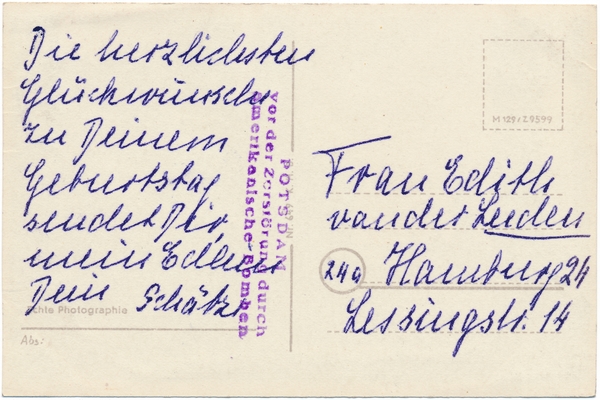 Die herzlichsten
Glückwünsche
zu Deinem
Geburtstag
sendet Dir,
mein
Dein Schätzi
Echte Photographie
Abs:
POTSDAM
vor der Zerstörung durch
amerikanische Bomben
M 129/20599
Frau Edith
van der Leeden
24a Hamburg 24
Lessingstr. 14